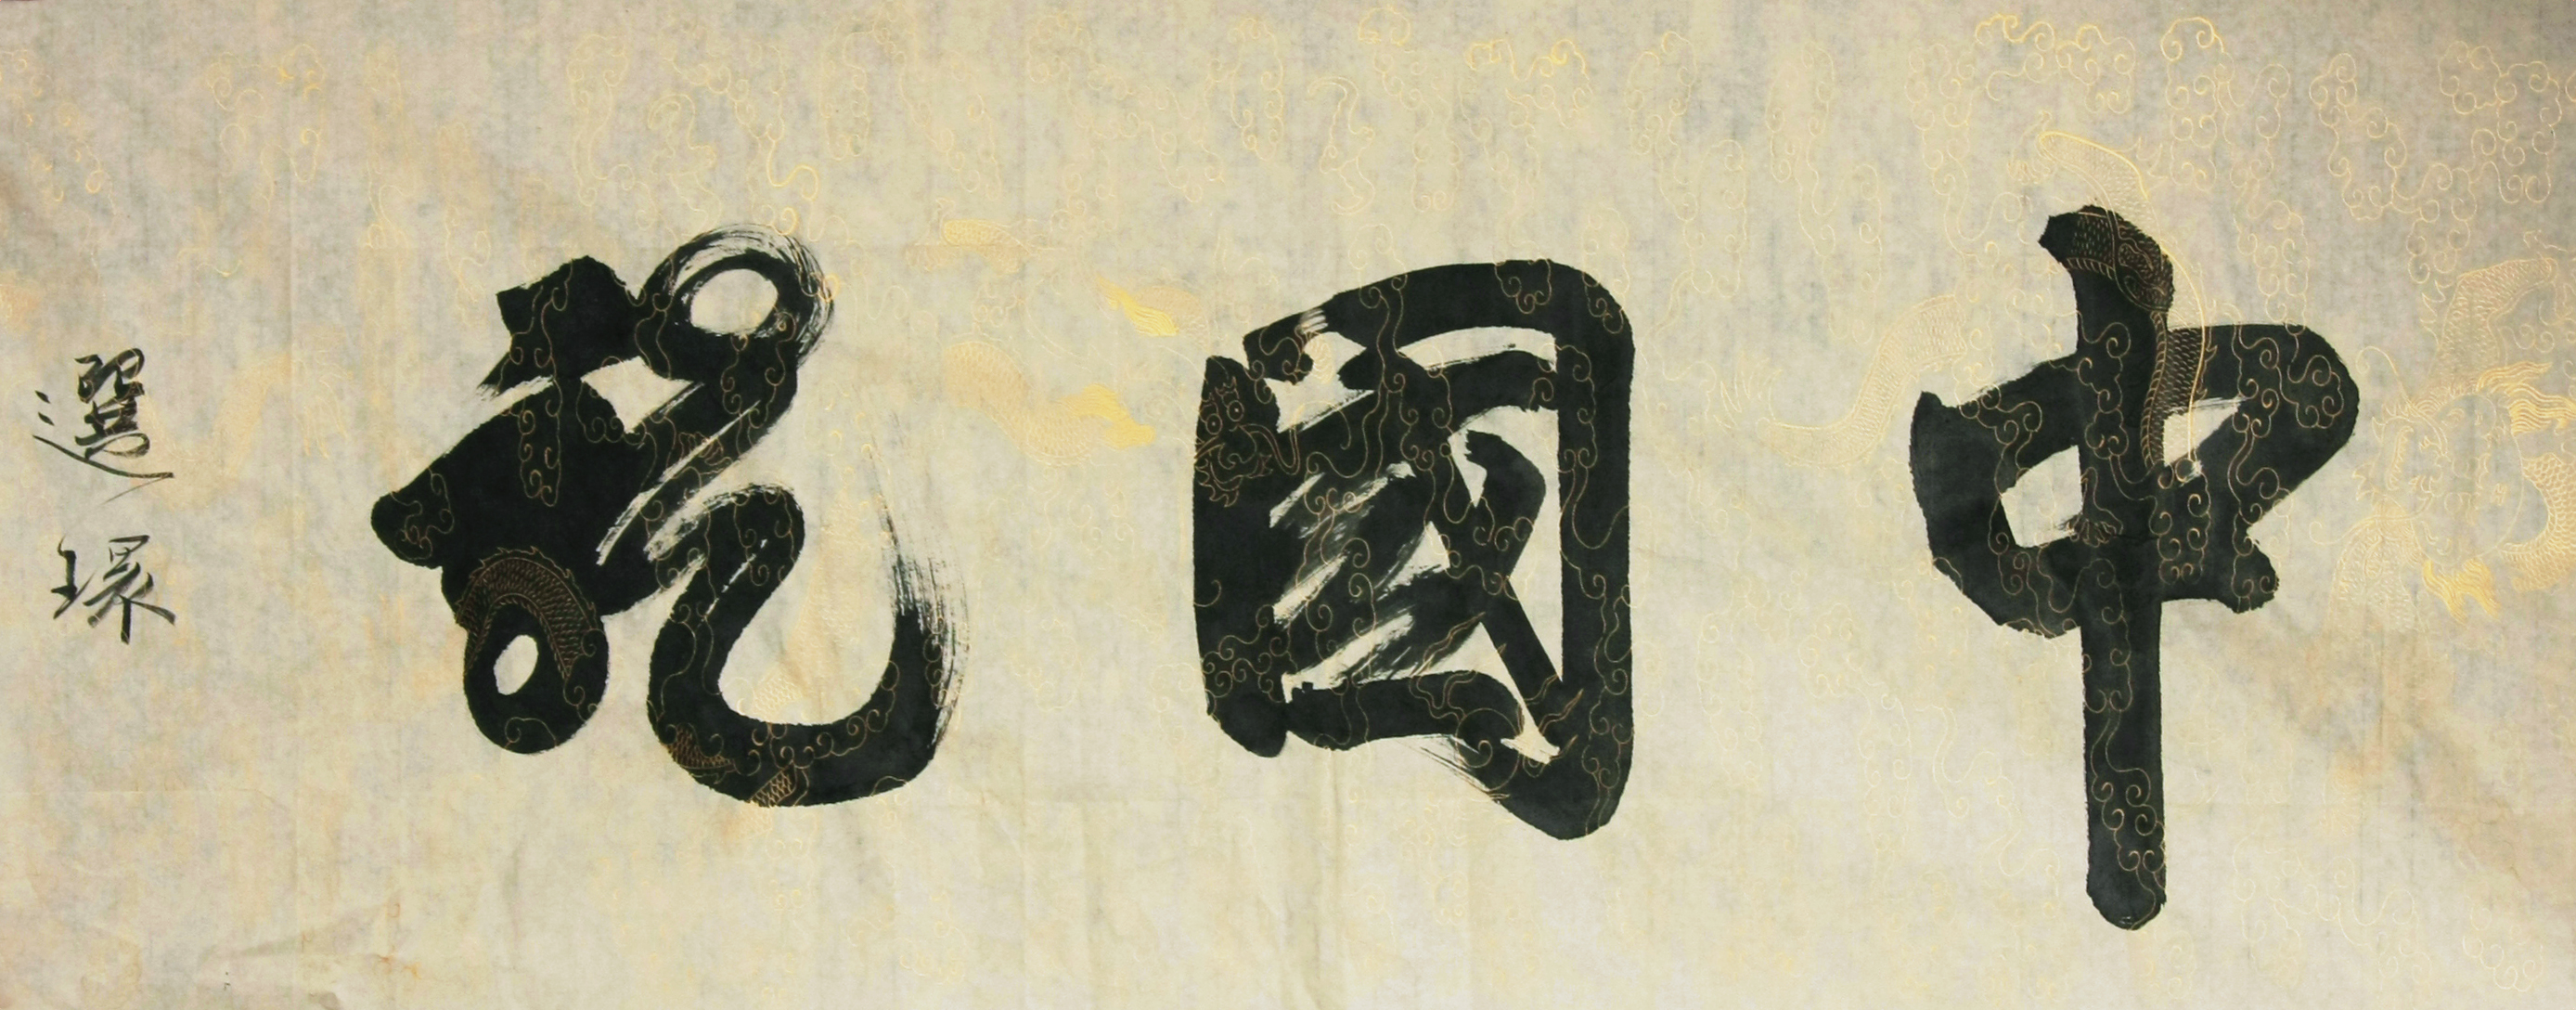 中國龍
選環